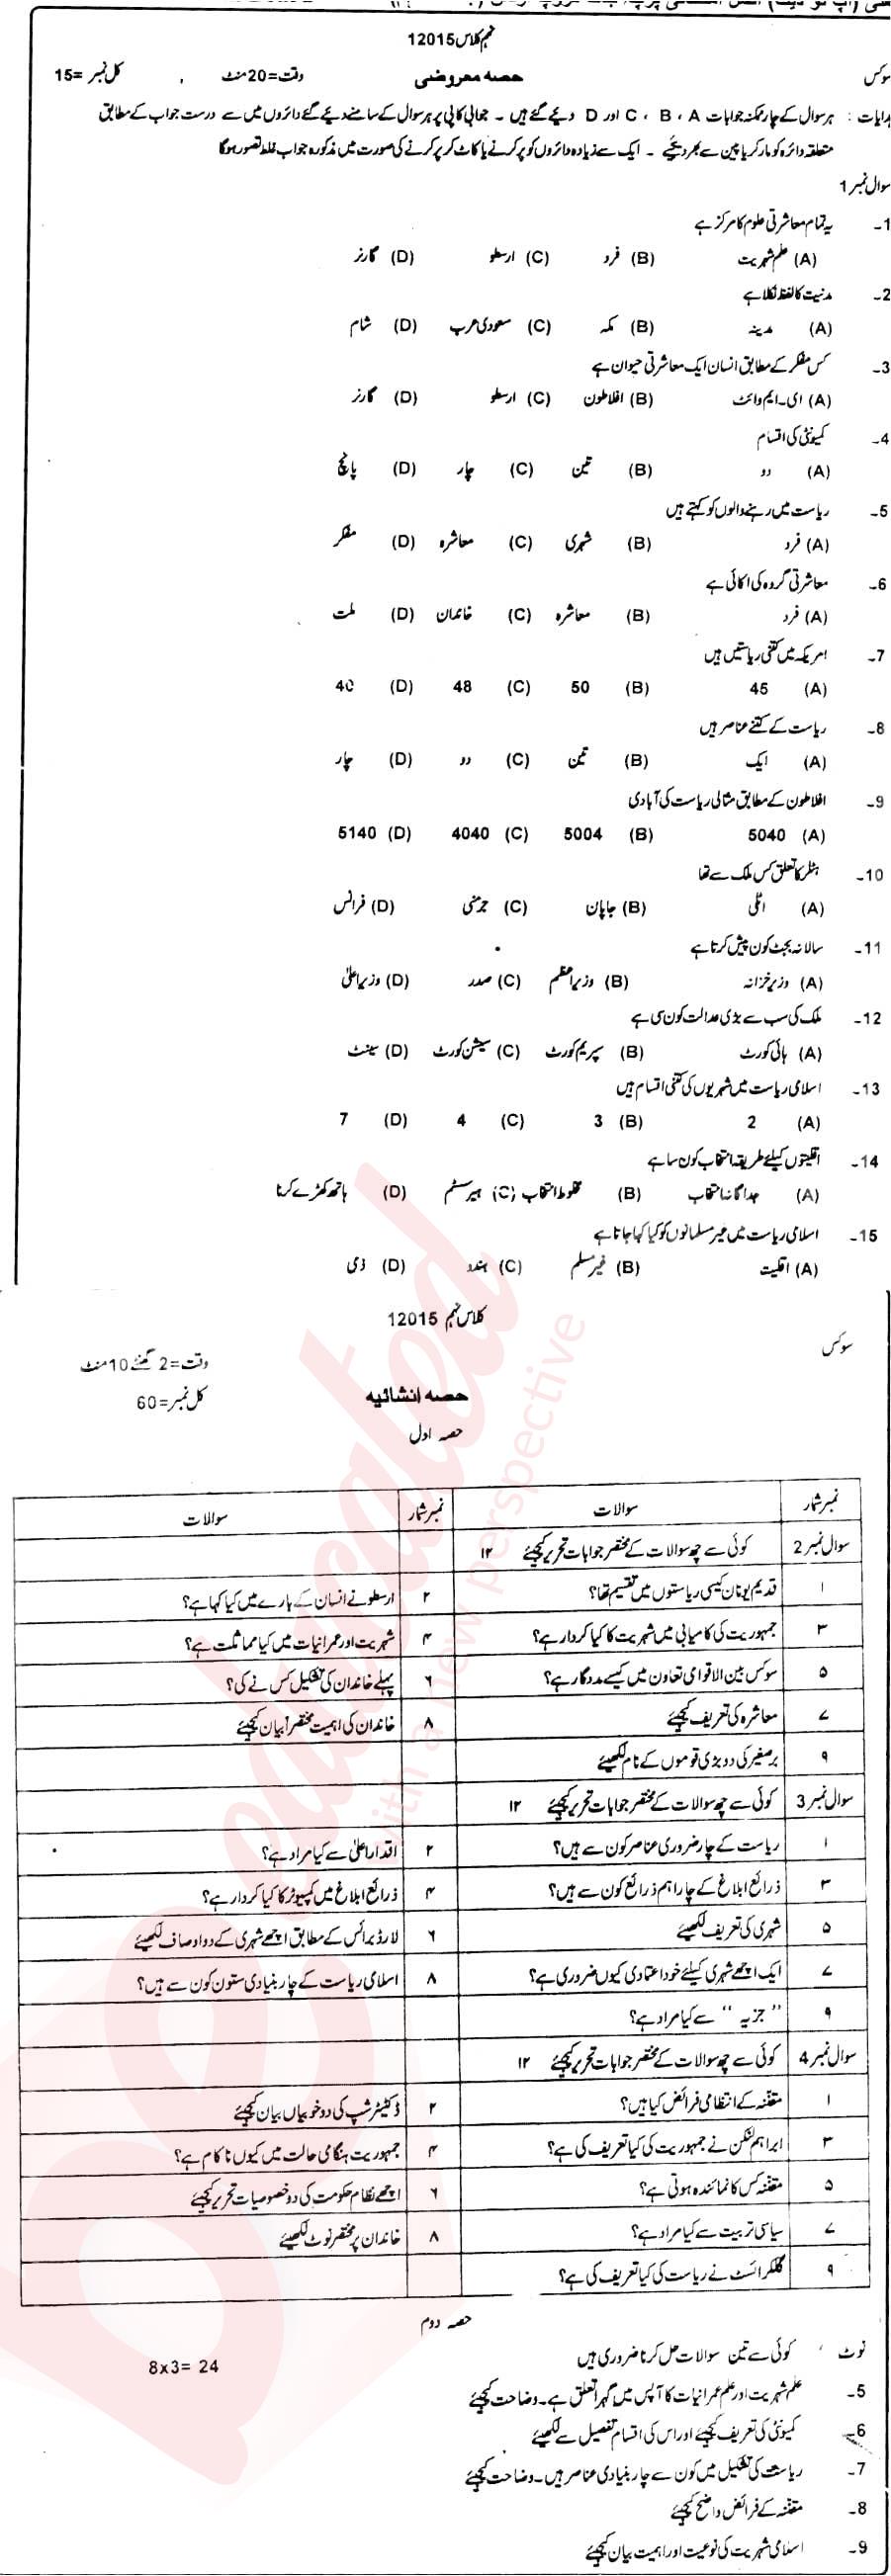 نہم کلاس 12015
سوکس حصہ معروضی وقت=20 منٹ کل نمبر=15
ہدایات : ہر سوال کے چار ممکنہ جوابات A ، B ، C اور D دیئے گئے ہیں ۔ جوابی کاپی پر ہر سوال کے سامنے دیئے گئے دائروں میں سے درست جواب کے مطابق
متعلقہ دائرہ کو مارکر یا پین سے بھر دیجئے ۔ ایک سے زیادہ دائروں کو پر کرنے یا کاٹ کر پر کرنے کی صورت میں مذکورہ جواب غلط تصور ہوگا
سوال نمبر 1
1۔ یہ تمام معاشرتی علوم کا مرکز ہے
(A) علم شہریت (B) فرد (C) ارسطو (D) گارنر
2۔ مدنیت کا لفظ نکلا ہے
(A) مدینہ (B) مکہ (C) سعودی عرب (D) شام
3۔ کس مفکر کے مطابق انسان ایک معاشرتی حیوان ہے
(A) ای۔ایم وائٹ (B) افلاطون (C) ارسطو (D) گارنر
4۔ کمیونٹی کی اقسام
(A) دو (B) تین (C) چار (D) پانچ
5۔ ریاست میں رہنے والوں کو کہتے ہیں
(A) فرد (B) شہری (C) معاشرہ (D) مفکر
6۔ معاشرتی گروہ کی اکائی ہے
(A) فرد (B) معاشرہ (C) خاندان (D) ملت
7۔ امریکہ میں کتنی ریاستیں ہیں
(A) 45 (B) 50 (C) 48 (D) 40
8۔ ریاست کے کتنے عناصر ہیں
(A) ایک (B) تین (C) دو (D) چار
9۔ افلاطون کے مطابق مثالی ریاست کی آبادی
(A) 5040 (B) 5004 (C) 4040 (D) 5140
10۔ ہٹلر کا تعلق کس ملک سے تھا
(A) اٹلی (B) جاپان (C) جرمنی (D) فرانس
11۔ سالانہ بجٹ کون پیش کرتا ہے
(A) وزیر خزانہ (B) وزیراعظم (C) صدر (D) وزیراعلیٰ
12۔ ملک کی سب سے بڑی عدالت کون سی ہے
(A) ہائی کورٹ (B) سپریم کورٹ (C) سیشن کورٹ (D) سینٹ
13۔ اسلامی ریاست میں شہریوں کی کتنی اقسام ہیں
(A) 2 (B) 3 (C) 4 (D) 7
14۔ اقلیتوں کیلئے طریقہ انتخاب کون سا ہے
(A) جداگانہ انتخاب (B) مخلوط انتخاب (C) ہیر سسٹم (D) ہاتھ کھڑے کرنا
15۔ اسلامی ریاست میں غیر مسلمانوں کو کیا کہا جاتا ہے
(A) اقلیت (B) غیر مسلم (C) ہندو (D) ذمی
کلاس نہم 12015
سوکس
وقت=2 گھنٹے 10 منٹ
حصہ انشائیہ
کل نمبر=60
حصہ اول
نمبر شمار سوالات نمبر شمار سوالات
سوال نمبر 2 کوئی سے چھ سوالات کے مختصر جوابات تحریر کیجئے ۱۲
۱ قدیم یونان کیسی ریاستوں میں تقسیم تھا؟ ۲ ارسطو نے انسان کے بارے میں کیا کہا ہے؟
۳ جمہوریت کی کامیابی میں شہریت کا کیا کردار ہے؟ ۴ شہریت اور عمرانیات میں کیا مماثلت ہے؟
۵ سوکس بین الاقوامی تعاون میں کیسے مددگار ہے؟ ۶ پہلے خاندان کی تشکیل کس نے کی؟
۷ معاشرہ کی تعریف کیجئے ۸ خاندان کی اہمیت مختصراً بیان کیجئے
۹ برصغیر کی دو بڑی قوموں کے نام لکھیئے
سوال نمبر 3 کوئی سے چھ سوالات کے مختصر جوابات تحریر کیجئے ۱۲
۱ ریاست کے چار ضروری عناصر کون سے ہیں؟ ۲ اقتدار اعلیٰ سے کیا مراد ہے؟
۳ ذرائع ابلاغ کے چار اہم ذرائع کون سے ہیں؟ ۴ ذرائع ابلاغ میں کمپیوٹر کا کیا کردار ہے؟
۵ شہری کی تعریف لکھیئے ۶ لارڈ برائس کے مطابق اچھے شہری کے دو اوصاف لکھیئے
۷ ایک اچھے شہری کیلئے خود اعتمادی کیوں ضروری ہے؟ ۸ اسلامی ریاست کے چار بنیادی ستون کون سے ہیں؟
۹ "جزیہ" سے کیا مراد ہے؟
سوال نمبر 4 کوئی سے چھ سوالات کے مختصر جوابات تحریر کیجئے ۱۲
۱ مقننہ کے انتظامی فرائض کیا ہیں؟ ۲ ڈکٹیٹر شپ کی دو خوبیاں بیان کیجئے
۳ ابراہم لنکن نے جمہوریت کی کیا تعریف کی ہے؟ ۴ جمہوریت ہنگامی حالت میں کیوں ناکام ہے؟
۵ مقننہ کس کا نمائندہ ہوتی ہے؟ ۶ اچھے نظام حکومت کی دو خصوصیات تحریر کیجئے
۷ سیاسی تربیت سے کیا مراد ہے؟ ۸ خاندان پر مختصر نوٹ لکھیئے
۹ گلکرائسٹ نے ریاست کی کیا تعریف کی ہے؟
حصہ دوم
نوٹ کوئی سے تین سوالات حل کرنا ضروری ہیں 8x3= 24
5۔ علم شہریت اور علم عمرانیات کا آپس میں گہرا تعلق ہے۔ وضاحت کیجئے
6۔ کمیونٹی کی تعریف کیجئے اور اس کی اقسام تفصیل سے لکھیئے
7۔ ریاست کی تشکیل میں کون سے چار بنیادی عناصر ہیں۔ وضاحت کیجئے
8۔ مقننہ کے فرائض واضح کیجئے
9۔ اسلامی شہریت کی نوعیت اور اہمیت بیان کیجئے
beeducated
with a new perspective